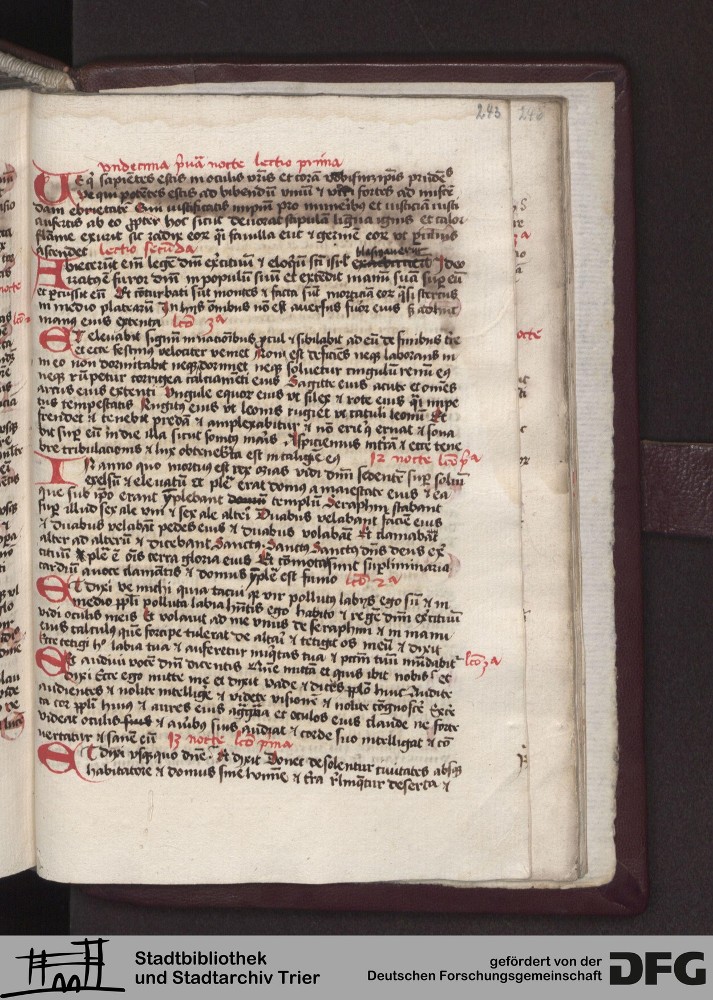 243 248
vndecima p̄ua nocte lectio prima
Ue q̄ sapientes estis in oculis vr̄is et corā vobismetip̄is prudēs
ve qui potentes estis ad bibendū vinū & viri fortes ad miscē
dam ebrietatē Qui iustificatis impiū pro muneribꝰ et iusticiā iusti
aufertis ab eo ꝓpter hoc sicut deuorat stipulā lingua ignis et calor
flāme exurit sic radix eor quasi fauilla erit & germē eor vt puluis
ascendet lectio secūda
Abiecerūt em̄ legē dn̄i exercituū & eloquiū sc̄i isr̄l blasphemauerūt Ideo
iratꝰ ē furor dn̄i in populū suū et extēdit manū suā suꝑ eū
et ꝑcussit eū Et cōturbati sūt montes & facta sūt morticīa eor q̄si stercus
in medio platearū In hijs om̄ibus nō est auersus furor eius sꝫ adhuc
manꝰ eius extenta lc̄o 3ᵃ
Et eleuabit signū in nacionibꝰ ꝓcul & sibilabit ad eū de finibus tr̄e
et ecce festinꝰ velociter veniet Non est deficiēs neqꝫ laborans in
in eo non dormitabit neqꝫ dormiet neqꝫ soluetur cingulū renū eiꝰ
neqꝫ rūpetur corrigea calciamēti eius Sagitte eius acute et om̄es
arcus eius extenti Vngule equor eius vt silex & rote eius q̄si impe
tus tempestatis Rugitꝰ eius vt leonis rugiet vt catuli leonū Et
frendet & tenebit predā & amplexabitur & nō erit q̄ eruat & sona
bit suꝑ eū in die illa sicut sonitꝰ maris Aspiciemus in terrā & ecce tene
bre tribulationis & lux obtenebrata est in caligīe eiꝰ 12 nocte lc̄o pᵃ
In anno quo mortuꝰ est rex ozias vidi dn̄m sedentē suꝑ soliū
excelsū & eleuatū et plēa erat domus a maiestate eius & ea
que sub ip̄o erant īplebant templū Seraphin stabant
suꝑ illud sex ale vni & sex ale alteri Duabus velabant faciē eius
& duabus velabāt pedes eius & duabus volabāt Et clamabāt
alter ad alterū & dicebant Sanctꝰ Sanctꝰ Sanctꝰ dn̄s deus exer
cituū plēa ē ois terra gloria eius Et cōmota sunt suꝑliminaria
cardinū a voce clamātis & domus īpleta est fumo lc̄o 2ᵃ
Et dixi ve michi quia tacui quia vir pollutꝰ labijs ego sū & in
medio ppli polluta labia hn̄tis ego habito & regē dn̄m exercituū
vidi oculis meis Et volauit ad me vnus de seraphin & in manu
eius calculꝰ quē forcipe tulerat de altari & tetigit os meū & dixit
Ecce tetigi hoc labia tua & auferetur iniqꝫtas tua & pctm̄ tuū mūdabitʳ lc̄o 3ᵃ
Et audiui vocē dn̄i dicentis Quē mittā et quis ibit nobis et
dixi Ecce ego mitte me et dixit vade & dices pplo huic Audite
audientes & nolite intellige & videte visionē & nolite cognoscē Exce
ca cor ppli huius & aures eius aggraua et oculos eius claude ne forte
videat oculis suis & auribꝰ suis audiat & corde suo intelligat & cō
uertatur & sanē eū 13 nocte lc̄o p̄ma
Et dixi vsqꝫquo dn̄e Et dixit Donec desolentur ciuitates absqꝫ
habitatore & domus sine homīe & terra relinquetur deserta &
Stadtbibliothek
und Stadtarchiv Trier
gefördert von der
Deutschen Forschungsgemeinschaft DFG